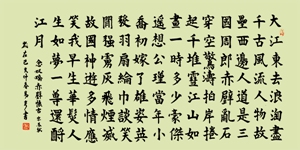 大江東去浪淘盡
千古風流人物故
壘西邊人道是三
國周郎赤壁亂石
穿空驚濤拍岸捲
起千堆雪江山如
畫一時多少豪傑
遙想公瑾當年小
喬初嫁了雄姿英
發羽扇綸巾談笑
間強虜灰飛煙滅
故國神遊多情應
笑我早生華髮人
生如夢一尊還酹
江月
念奴嬌赤壁懷古